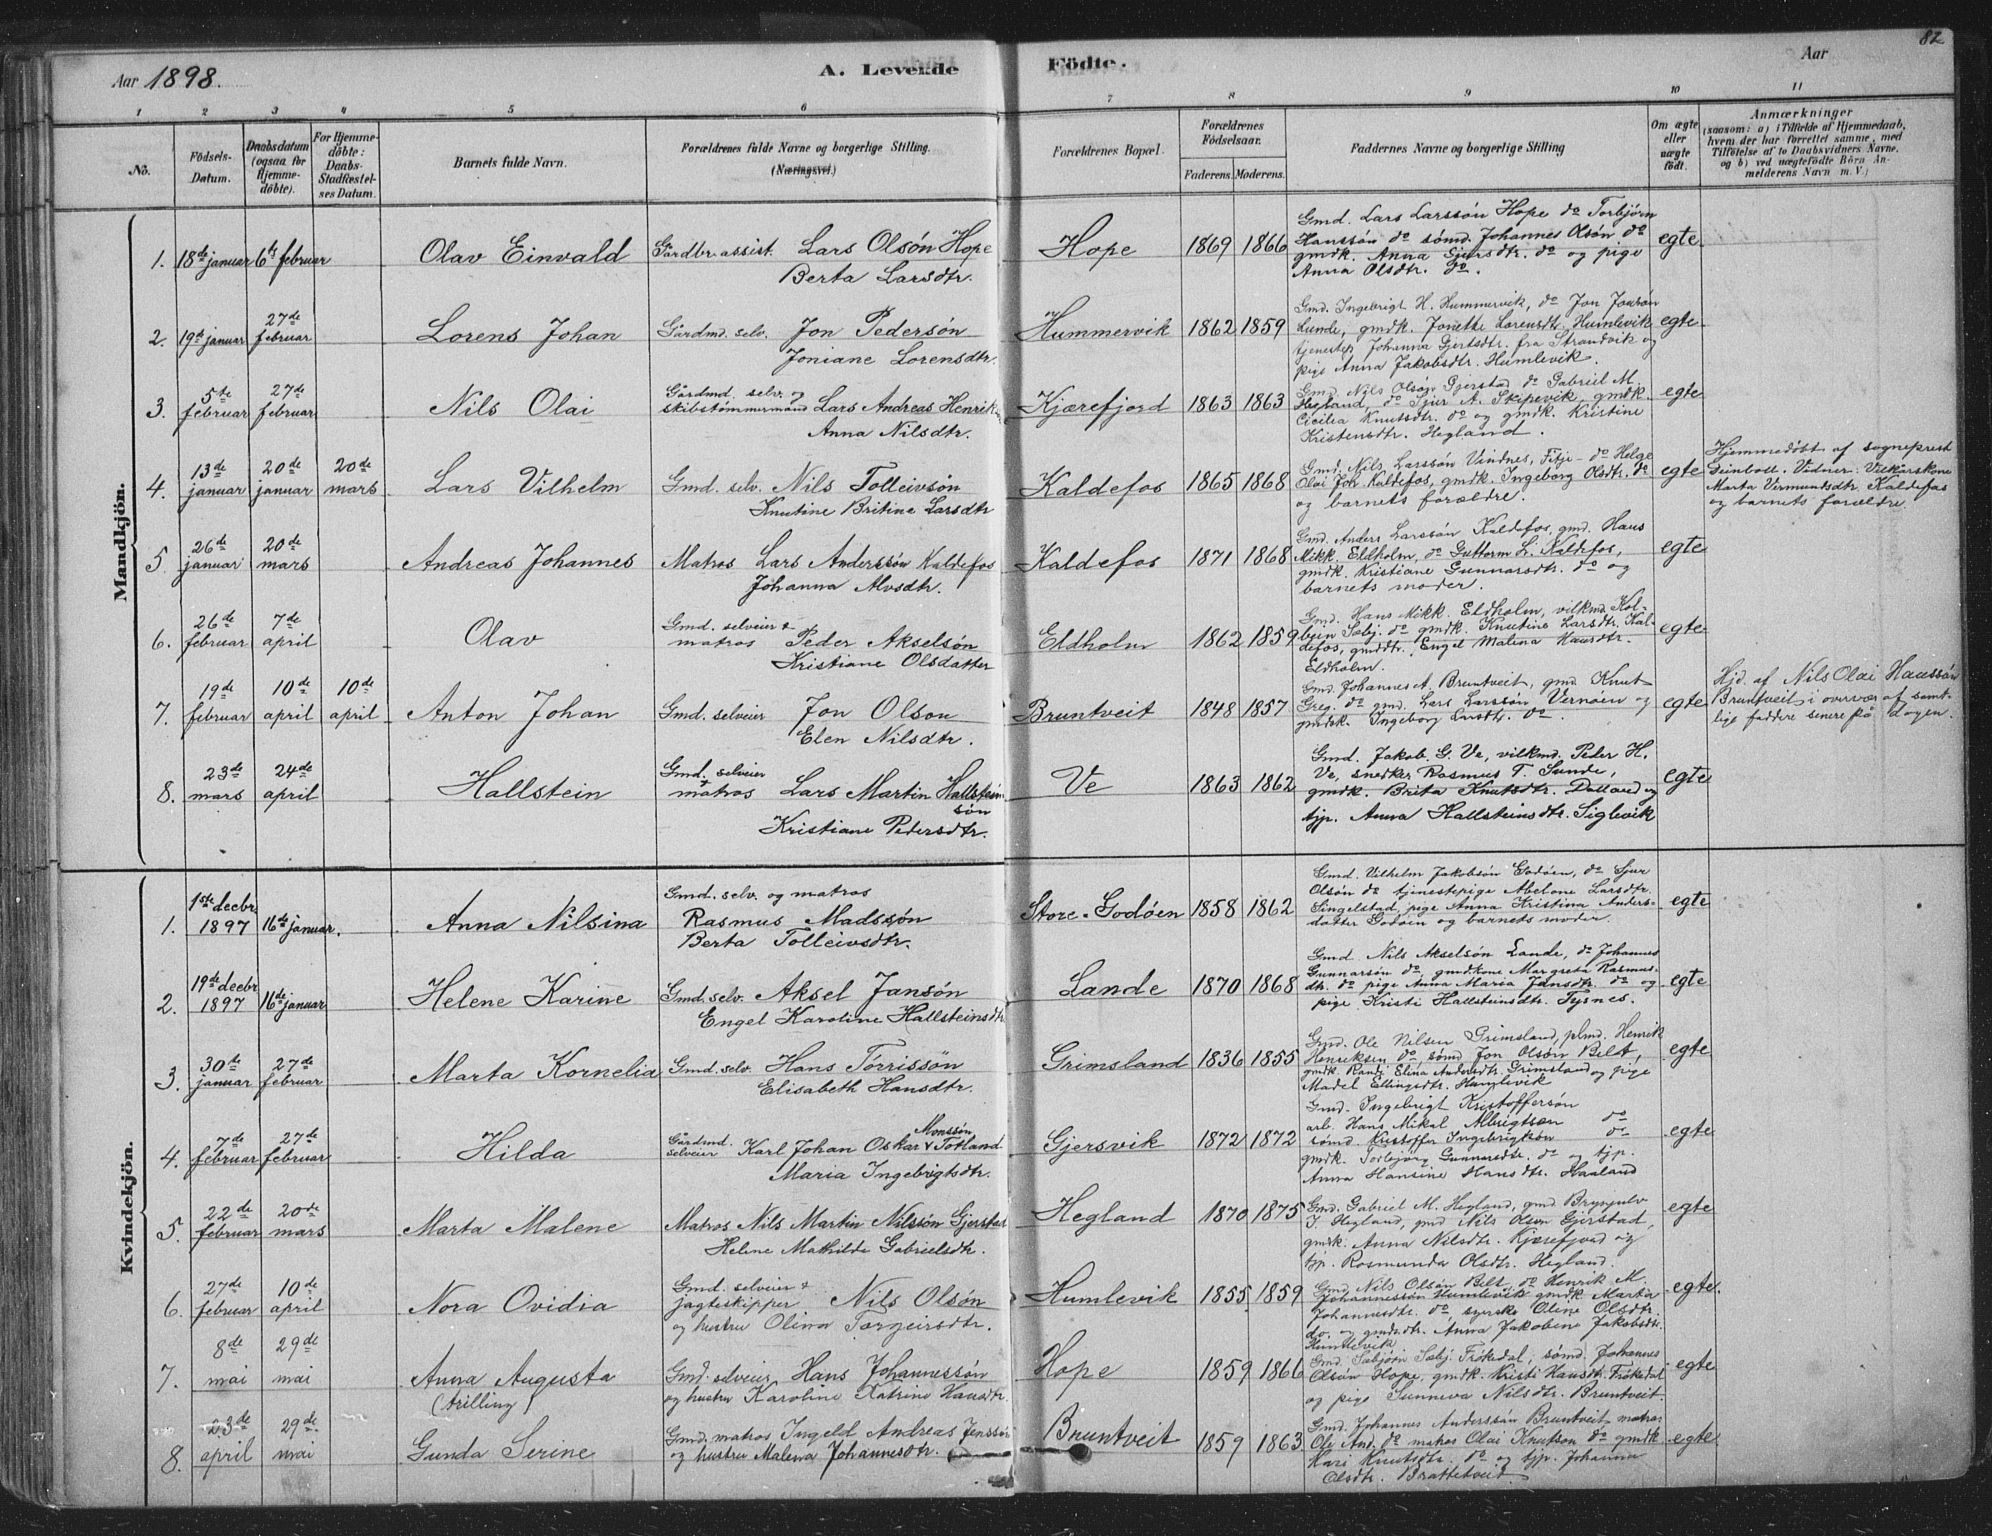 Aar 1898.
A. Levende Födte.
Aar
82
1 2 3 4 5 6 7 8 9 10 11
No.
Födsels-Datum.
Daabsdatum (ogsaa for Hjemmedöbte).
For Hjemmedöbte: Daabs-Stadfæstelses Datum.
Barnets fulde Navn.
Forældrenes fulde Navne og borgerlige Stilling.
(Næringsvei.)
Forældrenes Bopæl.
Forældrenes Födselsaar.
Faderens. Moderens.
Faddernes Navne og borgerlige Stilling
Om ægte eller uægte födt.
Anmærkninger
(saasom: a) i Tilfælde af Hjemmedaab,
hvem der har forrettet samme, med
Tilföielse af to Daabsvidners Navne,
og b) ved uægtefödte Börn Anmelderens Navn m. V.)
Mandkjön.
1. 18de januar 6te februar Olav Einvald Gårdbr. assist. Lars Olsön Hope
Berta Larsdtr. Hope 1869 1866
Gmd. Lars Larssön Hope do Torbjörn
Hanssön do sömd. Johannes Olsön do
gmdk. Anna Gjersdtr. do og pige
Anna Olsdtr. do.
egte
2. 19de januar 27de februar Lorens Johan Gårdmd. selv. Jon Pedersön
Joniane Lorensdtr. Hummervik 1862 1859
Gmd. Ingebrigt H. Hummervik, do Jon Jonsön
Lunde, gmdk. Jonette Lorensdtr. Humlevik
tjenestep Johanna Gjertsdtr. fra Strandvik og
pige Anna Jakobsdtr. Humlevik.
egte
3. 5te februar 27de februar Nils Olai Gårdmd. selv. og
skibstømmermand Lars Andreas Henriksen
Anna Nilsdtr. Kjærefjord 1863 1863
Gmd. Nils Olson Gjerstad do Gabriel M.
Hegland, do Sjur A. Skipevik, gmdk.
Cicilia Knutsdtr. do og gmdk. Kristine
Kristensdtr. Hegland.
egte
4. 13de januar 20de januar 20de mars Lars Vilhelm Gmd. selv. Nils Tolleivsön
Knutine Britine Larsdtr Kaldefos 1865 1868
Gmd. Nils Larssön Vindnes, Fitje do Helge
Olai Jon. Kaldefos, gmdk. Ingeborg Olsdtr. do
og barnets forældre.
egte
Hjemmedöbt af sogneprest
Deinboll. Vidner: Vilkårskone
Marta Vermundsdtr Kaldefos
og barnets forældre.
5. 26de januar 20de mars Andreas Johannes Matros Lars Anderssön Kaldefos
Johanna Alvsdtr. Kaldefos 1871 1868
Gmd. Anders Larssön Kaldefos, gmd. Hans
Mikk. Eldholm, do Guttorm L. Kaldefos,
gmdk. Kristiane Gunnarsdtr. do og
barnets moder.
egte
6. 26de februar 7de april Olav Gmd. selveier &
matros Peder Akselsön
Kristiane Olsdatter Eldholm 1862 1859
Gmd. Hans Mikk. Eldholm, vilkmd Kol-
bein Sæbj. do gmdk. Knutine Larsdtr. Kal-
defos, gmddtr. Engel Malena Hansdtr.
Eldholm.
egte
7. 19de februar 10de april 10de april Anton Johan Gmd. selveier Jon Olson
Elen Nilsdtr. Bruntveit 1848 1857
Gmd. Johannes A. Bruntveit, gmd Knut
Greg. do gmd. Lars Larssön Vernöen og
gmdk. Ingeborg Larsdtr. do
egte
Hjd. af Nils Olai Hanssön
Bruntveit i overvær af samt-
lige faddere senere på dagen.
8. 23de mars 24de april Hallstein Gmd. selveier
+ matros Lars Martin Hallstein
sön
Kristiane Pedersdtr. Ve 1863 1862
Gmd. Jakob G. Ve, vilkmd. Peder H.
Ve, snedker Rasmus T. Sunde,
gmdk. Brita Knutsdtr. Dalland og
tjp. Anna Hallsteinsdtr. Siglevik
egte
Kvindekjön.
1. 1ste decbr 1897 16de januar. Anna Nilsina Gmd. selv. og matros
Rasmus Madssön
Berta Tolleivsdtr. Store-Godöen 1858 1862
Gmd. Vilhelm Jakobsön Godöen, do Sjur
Olsön do tjenestepige Abelone Larsdtr.
Singelstad, pige Anna Kristina Anders-
datter Godöen og barnets moder.
egte
2. 19de decbr 1897 16de januar Helene Karine Gmd. selv. Aksel Jansön
Engel Karoline Hallsteinsdtr Lande 1870 1868
Gmd. Nils Akselsön Lande, do Johannes
Gunnarsön do, gmdkone Margreta Rasmus-
dtr. do pige Anna Maria Jansdtr. do og
pige Kristi Hallsteinsdtr. Tysnes.
egte
3. 30te januar 27de februar Marta Kornelia Gmd. selv. Hans Törrissön
Elisabeth Hansdtr. Grimsland 1836 1855
Gmd. Ole Nilsen Grimsland, plmd. Henrik
Henriksen do, sömd Jon Olsön Belt,
gmdk. Randi Elina Andersdtr. Grimsland og pige
Madel Ellingsdtr. Humlevik
egte
4. 7de februar 27de februar Hilda Gårdmd.
selveier Karl Johan Oskar Monssön Totland
Maria Ingebrigtsdtr. Gjersvik 1872 1872
Gmd. Ingebrigt Kristoffersön
arb. Hans Mikal Albrigtsen do
sömd. Kristoffer Ingebrigtsön do
gmdk. Torbjörg Gunnarsdtr. do og tjp.
Anna Hansine Hansdtr. Haaland
egte
5. 22de februar 20de mars Marta Malene Matros Nils Martin Nilssön Gjerstad
Helene Mathilde Gabrielsdtr. Hegland 1870 1875
Gmd. Gabriel M. Hegland, gmd Brynjulv
J. Hegland, gmd Nils Olson Gjerstad,
gmdk. Anna Nilsdtr. Kjærefjord og
tjp. Rosmunda Olsdtr. Hegland.
egte
6. 27de februar 10de april Nora Ovidia Gmd. selveier &
jagteskipper Nils Olsön
og hustru Olina Torgeirsdtr. Humlevik 1855 1859
Gmd. Nils Olsön Belt, do Henrik M.
Johannessön Humlevik gmdk Marta
Johannesdtr. do syerske Oline Olsdtr.
do. og gmdsdtr. Anna Jakobine Jakobsdtr.
Humlevik
egte.
7. 8de mai 29de mai Anna Augusta
(trilling) Gmd. selveier Hans Johannessön
og hustru Karoline Katrine Hansdtr Hope 1859 1866
Gmd. Sæbjörn Sæbj. Frökedal, sömd. Johannes
Olsön Hope, gmdk. Kristi Hansdtr. Frökedal
og pige Sunneva Nilsdtr. Bruntveit.
egte
8. 23de april 29de mai Gunda Serine Gmd. matros Ingeld Andreas Jenssön
og hustru Malena Johannesdtr. Bruntveit 1859 1863
Gmd. Johannes Anderssön Bruntveit matros
Ole And. do matros Olai Knutson do gmdk
Kari Knutsdtr. do og tjp. Johanna
Olsdtr. Brattetveit.
egte